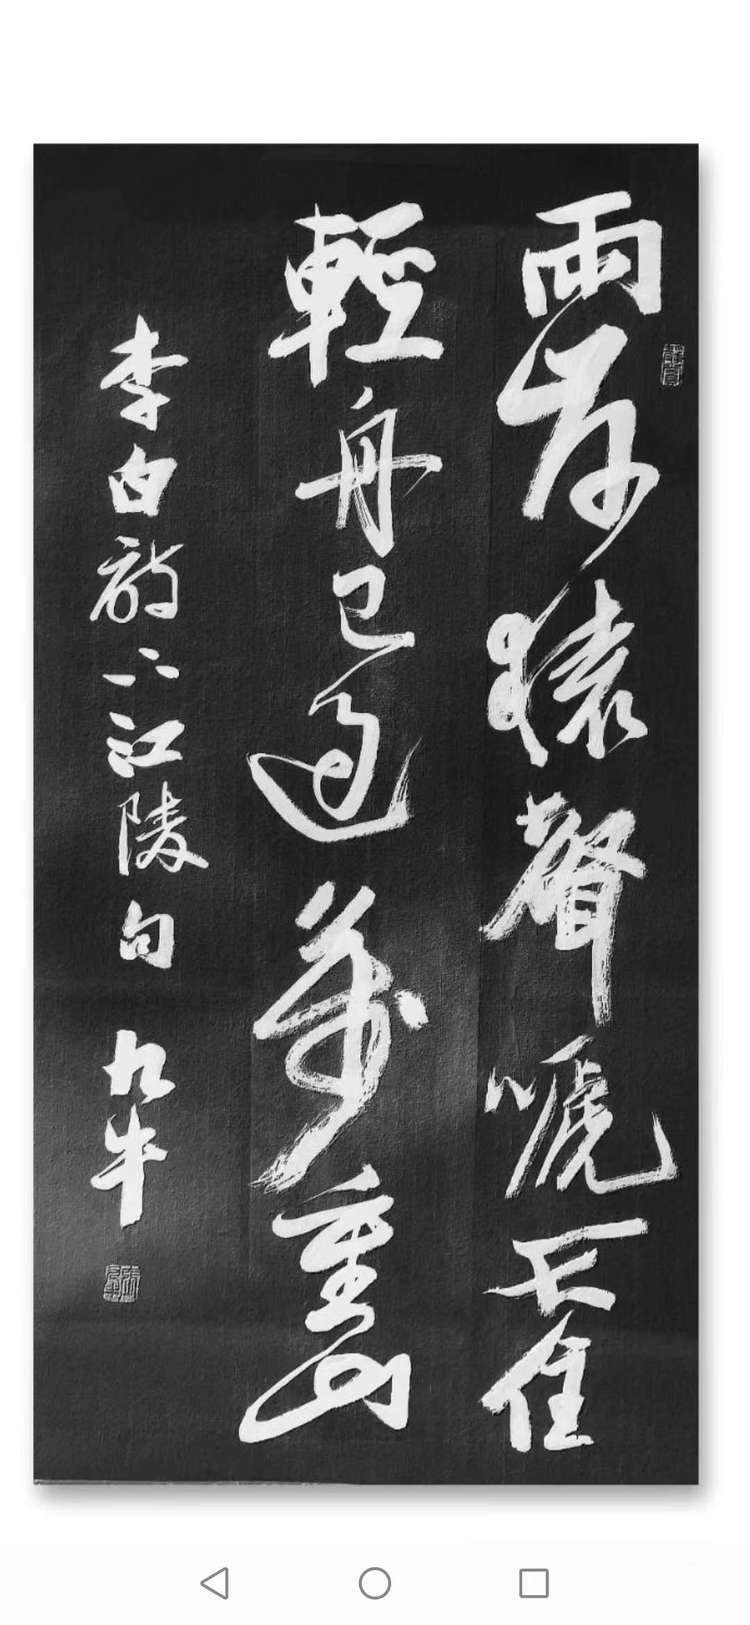 兩岸猿聲嗁不住
輕舟已過萬重山
李白詩下江陵句
九牛